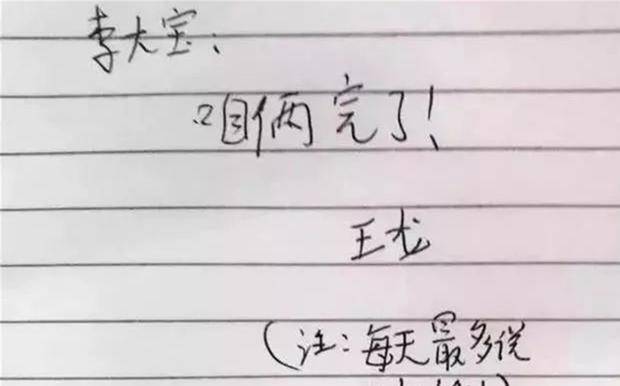 李大宝:
咱俩完了!
王龙
(注:每天最多说